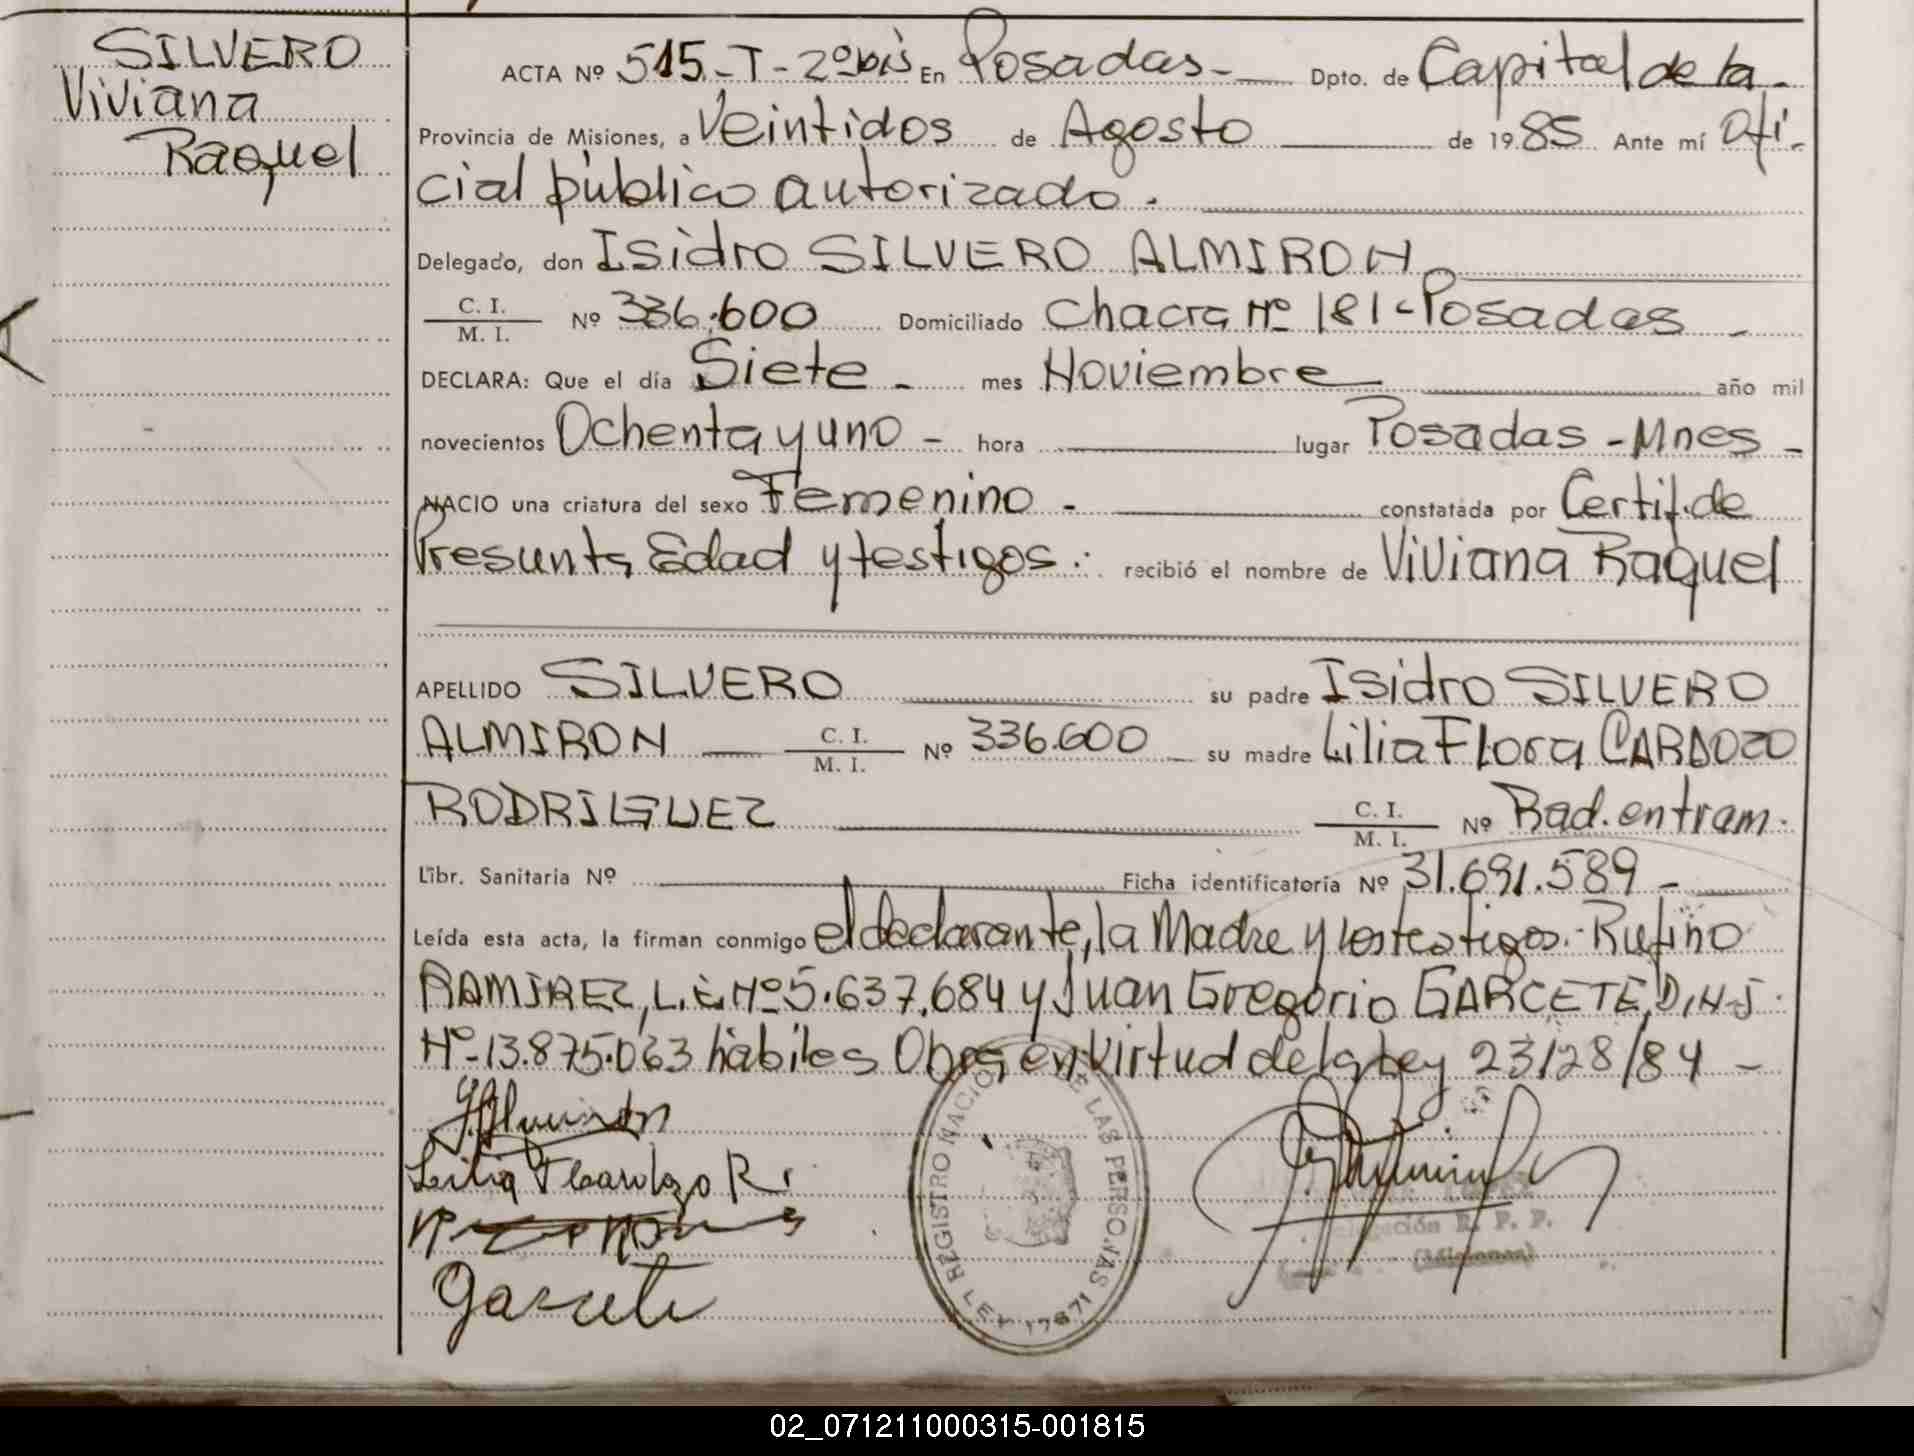 SILVERO
Viviana
Raquel
ACTA Nº 515-T-2º bis En Posadas- Dpto. de Capital de la-
Provincia de Misiones, a Veintidos de Agosto de 1985 Ante mí Ofi-
cial público autorizado.
Delegado, don Isidro SILVERO ALMIRON
C. I.
M. I.
Nº 336.600 Domiciliado Chacra Nº 181-Posadas -
DECLARA: Que el día Siete - mes Noviembre año mil
novecientos Ochenta y uno - hora lugar Posadas - Mnes -
NACIO una criatura del sexo Femenino - constatada por Certif. de
Presunta Edad y testigos.- recibió el nombre de Viviana Raquel
APELLIDO SILVERO su padre Isidro SILVERO
ALMIRON C. I.
M. I. Nº 336.600 su madre Lilia Flora CARDOZO
RODRIGUEZ C. I.
M. I. Nº Rad. en tram.
Libr. Sanitaria Nº Ficha identificatoria Nº 31.691.589 -
Leída esta acta, la firman conmigo el declarante, la Madre y los testigos.- Rufino
RAMIREZ, L.E. Nº 5.637.684 y Juan Gregorio GARCETE, D.N.I.
Nº-13.875.063 hábiles Obra en virtud de la Ley 23/28/84 -
Lilia F Cardozo R.
Garcete
REGISTRO NACIONAL DE LAS PERSONAS
LEY 17671
Delegación R. P. P.
(Misiones)
02_071211000315-001815